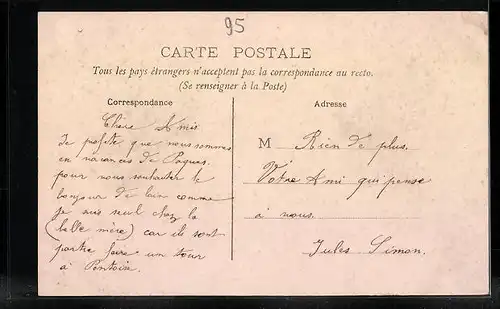 95
CARTE POSTALE
Tous les pays étrangers n'acceptent pas la correspondance au recto.
(Se renseigner à la Poste)
Correspondance
Chère Amie
Je profite que nous sommes
en vacances de Paques
pour vous souhaiter le
bonjour de loin comme
je suis seul chez la
(belle mère) car ils sont
partie faire un tour
à Pontoise.
Adresse
M Rien de plus.
Votre Ami qui pense
à vous.
Jules Simon.